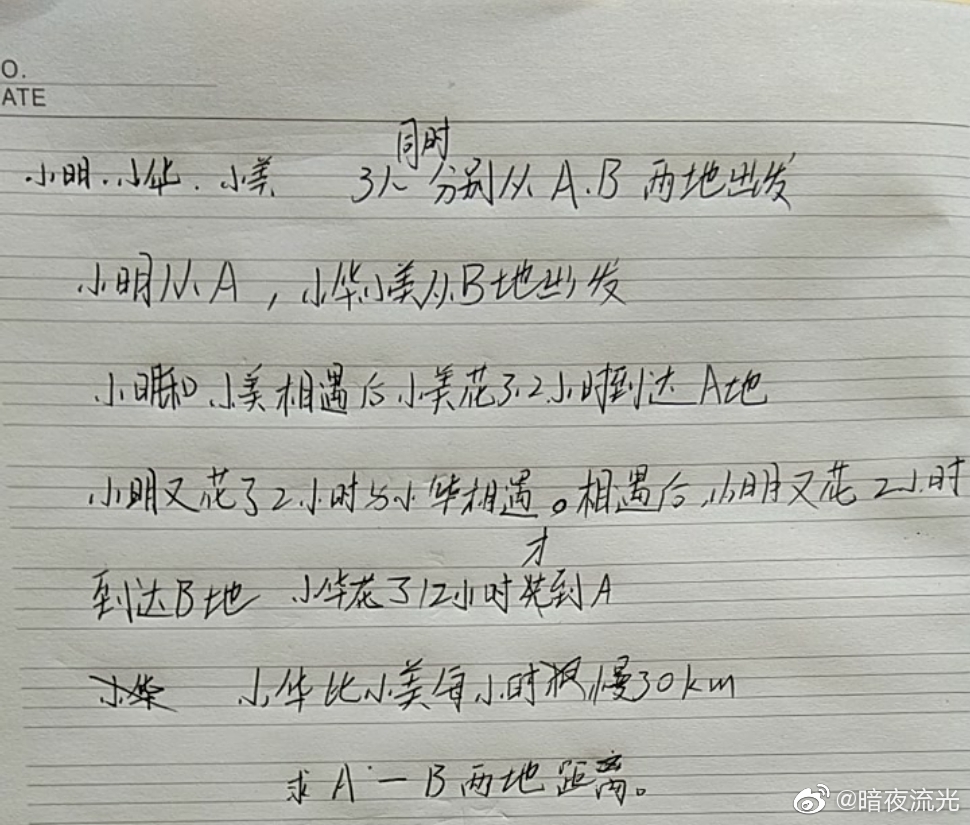 O.
ATE
同时
小明.小华.小美 3人分别从A.B两地出发
小明从A,小华小美从B地出发
小明和小美相遇后小美花了2小时到达A地
小明又花了2小时与小华相遇。相遇后小明又花2小时
才
到达B地 小华花了12小时到A
小华 小华比小美每小时慢30km
求A-B两地距离。
@暗夜流光